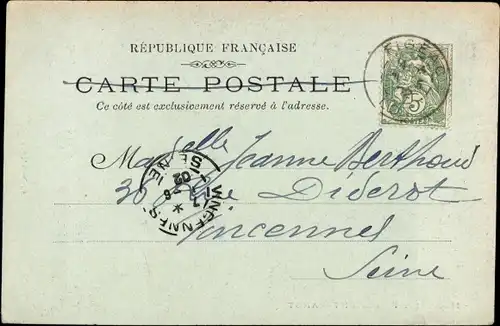 RÉPUBLIQUE FRANÇAISE
CARTE POSTALE
Ce côté est exclusivement réservé à l'adresse.
FIGEAC
5
Mademoiselle Jeanne Berthoud
30 Rue Diderot
Vincennes
Seine
VINCENNES
SEINE
7 - 6
02